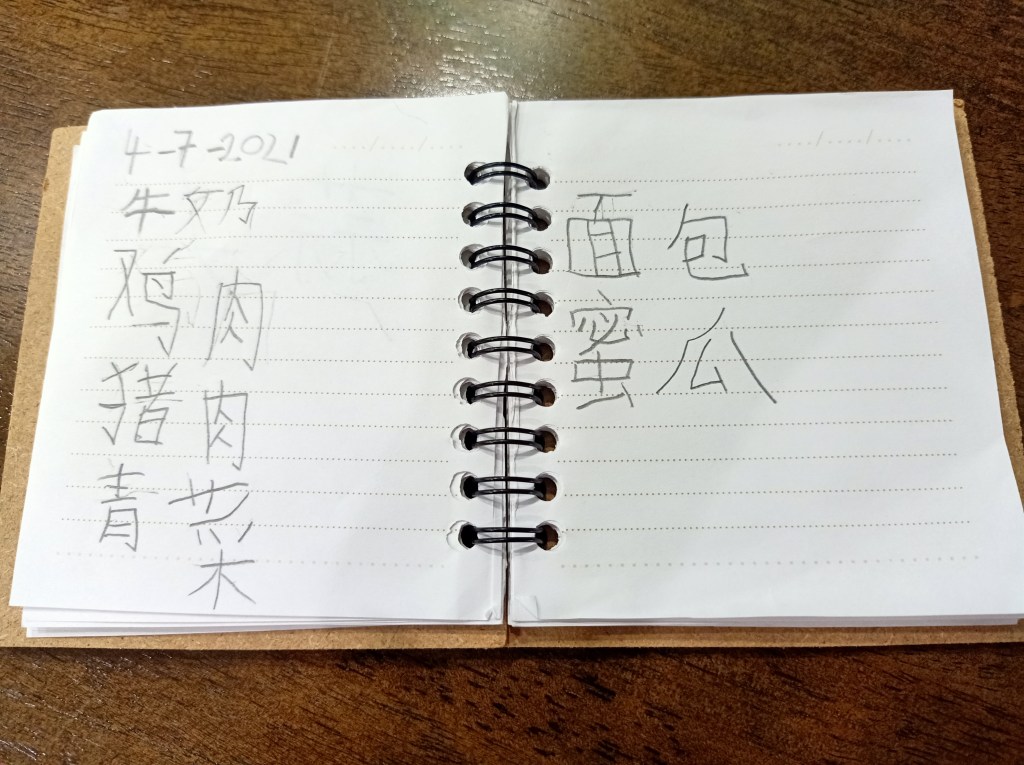 4-7-2021
牛奶
鸡肉
猪肉
青菜
面包
蜜瓜